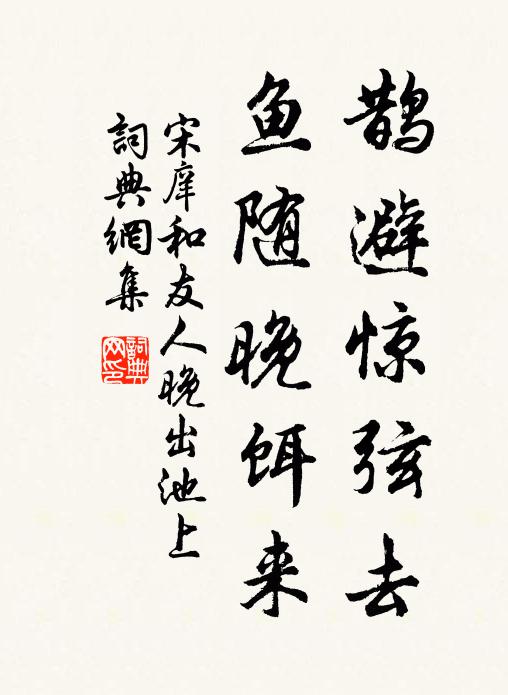 鹊避惊弦去
鱼随晚饵来
宋庠和友人晚出池上
詞典網集
詞典网印